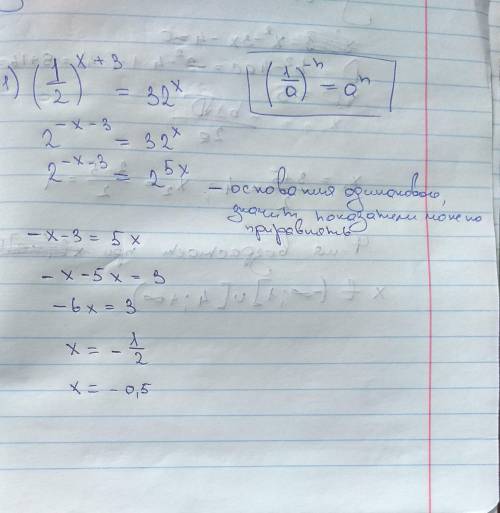 1) (1/2)^(x+3) = 32^x
(1/a)^(-n) = a^n
2^(-x-3) = 32^x
2^(-x-3) = 2^(5x)
– основания одинаковые,
значит показатели можно
приравнять
-x-3 = 5x
-x-5x = 3
-6x = 3
x = -1/2
x = -0,5